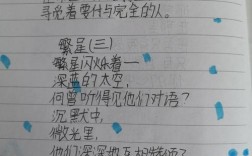 寻觅着要付与完全的人。
繁星(三)
繁星闪烁着一
深蓝的太空,
何曾听得见他们对语?
沉默中,
微光里,
他们深深地互相颂